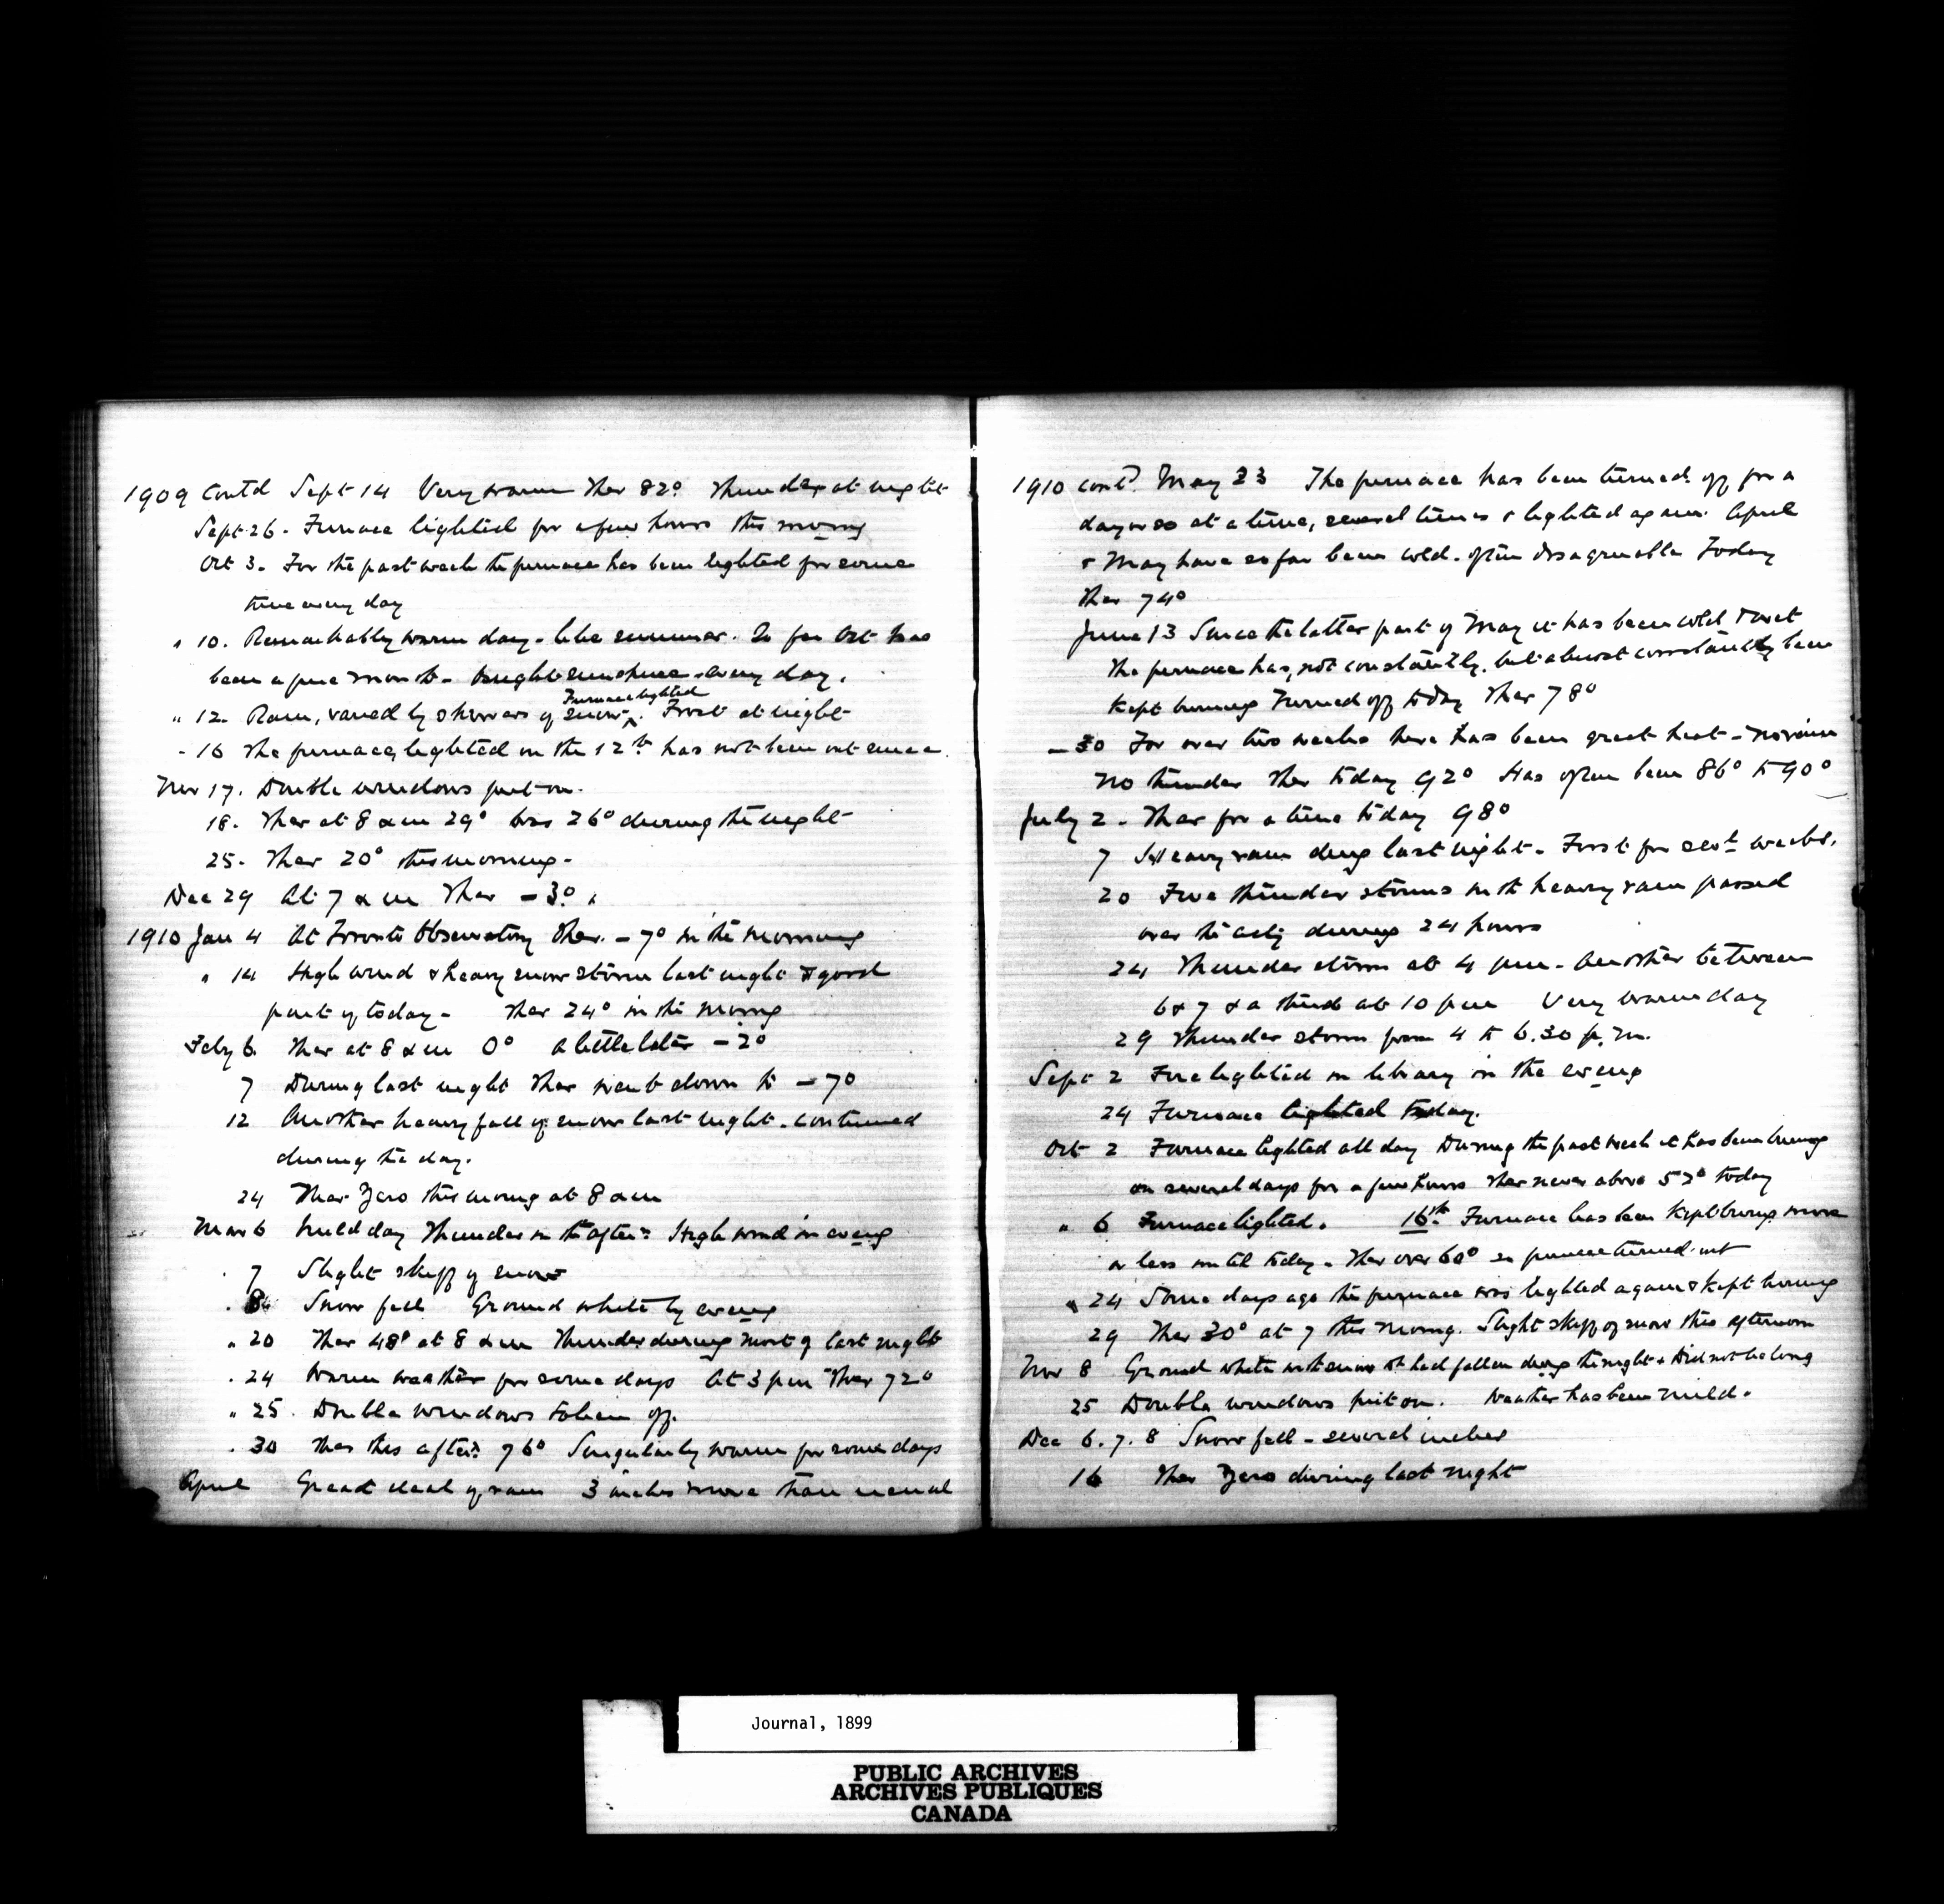 1909 Contd Sept 14 Very warm Ther 82° Thunder at night
Sept 26 - Furnace lighted for a few hours this morng
Oct 3. For the past week the furnace has been lighted for some
time every day
" 10. Remarkably warm day - like summer. So far Oct has
been a fine month - bright sunshine every day.
Furnace lighted
" 12. Rain, varied by showers of snow ^. Frost at night
- 16 The furnace, lighted on the 12th has not been out since.
Nov 17. Double windows put on.
18. Ther at 8 am 29° was 26° during the night
25. Ther 20° this morning -
Dec 29 At 7 am Ther - 3°.
1910 Jan 4 At Toronto Observatory Ther. - 7° in the morning
" 14 High wind & heavy snow storm last night & good
part of today - Ther 24° in the morng
Feby 6. Ther at 8 am 0° a little later - 2°
7 During last night Ther went down to - 7°
12 Another heavy fall of snow last night. Continued
during the day.
24 Ther Zero this morng at 8 am
Mar 6 Mild day Thunder in the aftern: High wind in eveng
" 7 Slight skiff of snow
" 8 Snow fell Ground white by eveng
" 20 Ther 48° at 8 am Thunder during most of last night
" 24 Warm weather for some days At 3 pm Ther 72°
" 25. Double windows taken off.
" 30 Ther this aftern: 76° Singularly warm for some days
April Great deal of rain 3 inches more than usual
1910 contd. May 23 The furnace has been turned off for a
day or so at a time, several times & lighted again. April
& May have so far been cold - often disagreeable Today
Ther 74°
June 13 Since the latter part of May it has been cold & wet
The furnace has, not constantly, but almost constantly been
kept burning Turned off today Ther 78°
- 30 For over two weeks there has been great heat - no rain
No thunder Ther today 92° Has often been 86° to 90°
July 2 - Ther for a time today 98°
7 Heavy rain durg last night - First for sevl weeks.
20 Five thunder storms with heavy rain passed
over the city during 24 hours
24 Thunder storm at 4 pm - Another between
6 & 7 & a third at 10 pm Very warm day
29 Thunder storm from 4 to 6.30 p.m.
Sept 2 Fire lighted in library in the eveng
24 Furnace lighted today.
Oct 2 Furnace lighted all day During the past week it has been burng
on several days for a few hours Ther never above 52° today
" 6 Furnace lighted. 16th. Furnace has been kept burng more
or less until today - Ther over 60° so furnace turned out
" 24 Some days ago the furnace was lighted again & kept burning
29 Ther 30° at 7 this morng. Slight skiff of snow this afternoon
Nov 8 Ground white with snow wh had fallen durg the night - Did not lie long
25 Double windows put on. Weather has been mild.
Dec 6. 7. 8 Snow fell - several inches
16 Ther Zero during last night
Journal, 1899
PUBLIC ARCHIVES
ARCHIVES PUBLIQUES
CANADA